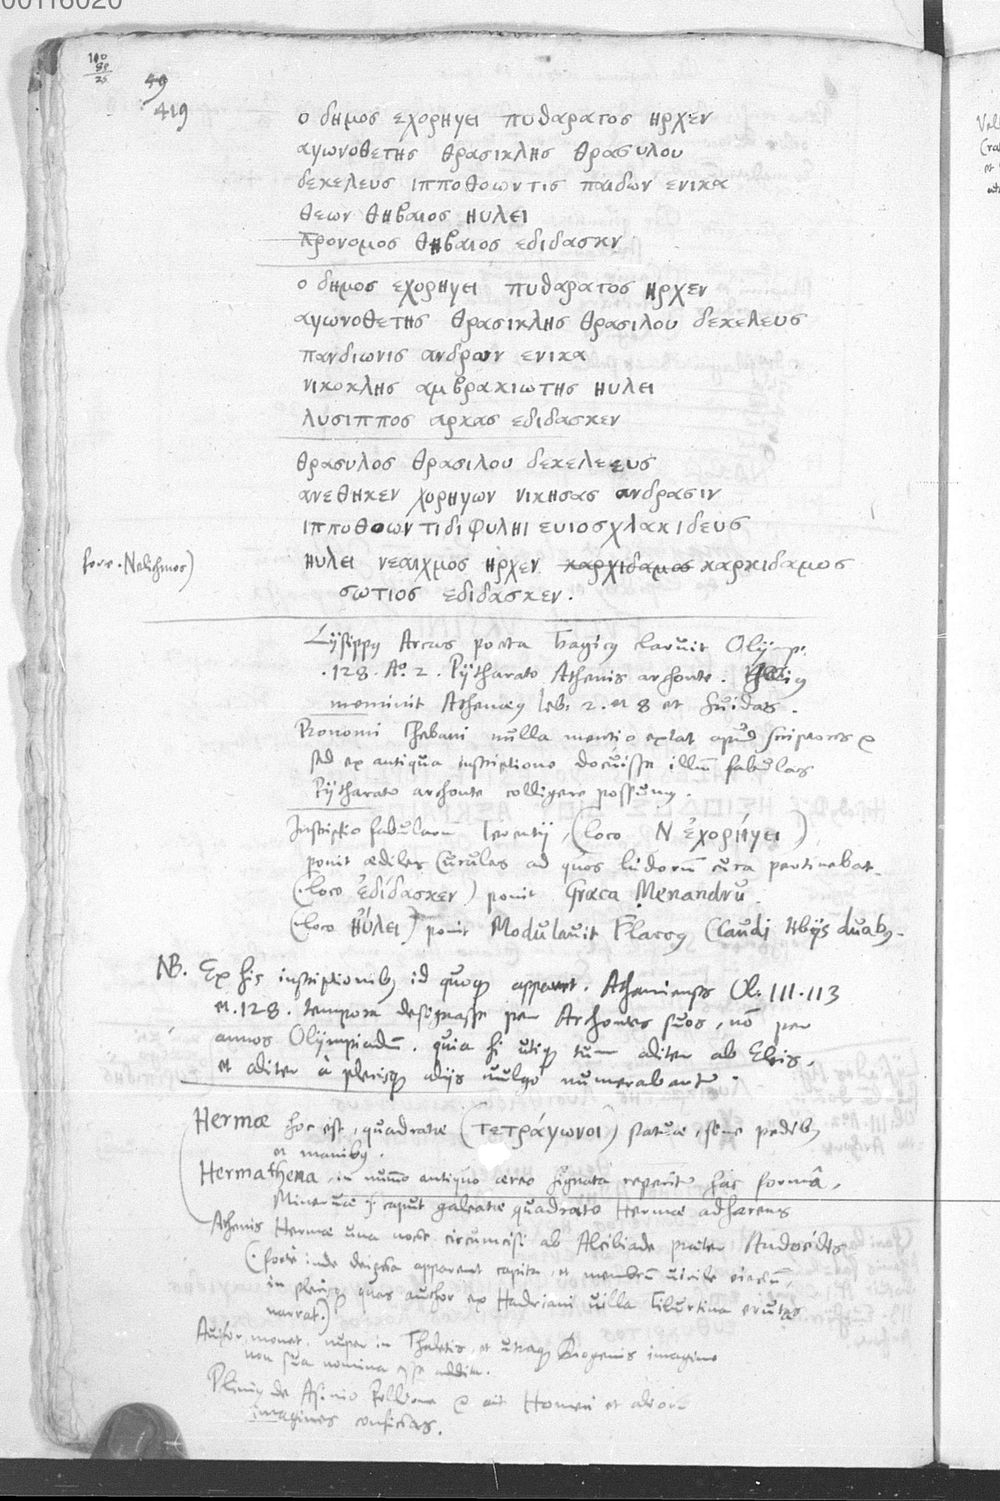 00116020
49
419
ο δημος εχορηγει πυθαρατος ηρχεν
αγωνοθετης θρασικλης θρασυλου
δεκελευς ιπποθοωντις παιδων ενικα
θεων θηβαιος ηυλει
προνομος θηβαιος εδιδασκν
ο δημος εχορηγει πυθαρατος ηρχεν
αγωνοθετης θρασικλης θρασιλου δεκελευς
πανδιωνις ανδρων ενικα
νικοκλης αμβρακιωτης ηυλει
λυσιππος αρκας εδιδασκεν
θρασυλος θρασιλου δεκελεευς
ανεθηκεν χορηγων νικησας ανδρασιν
ιπποθοωντιδι φυληι ευιοσχλακιδευς
ηυλει νεαιχμος ηρχεν καρχιδαμος καρκιδαμος
σωτιος εδιδασκεν.
Lÿsippq Arcas poeta Tragicq claruit Olÿmp.
128. Aº. 2. Pÿtharato Athenis archonte.
meminit Athenaeq leb. 2. et 8 et Suidas.
Pronomi Thebani nulla mentio extat apud scriptores
sed ex antiqua inscriptione docuisse illũ fabulas
Pÿtharato archonte colligere possumq.
Inscriptio fabularũ Terentij, (loco Ν ἐχορήγει)
ponit aediles Curules ad quos ludorũ cura pertinebat.
(loco ἐδίδασκεν) ponit Graeca Menandrũ
(loco ηὔλει) ponit Modulavit Flaccq Claudj tibÿs duabq.
NB. Ex his inscriptionibq id quoqȝ apparet. Athenienses Ol. 111.113
et.128. tempora designasse per Archontes suos, nõ per
annos Olÿmpiadũ. quia hi utiqȝ tum aliter ab Eleis,
et aliter à plerisqȝ alijs uulgo numerabantr.
Hermae hoc est, quadratae (τετράγωνοι) statuae, sine pedibq
et manibq.
Hermathena, in nummo antiquo aereo signata reperitr hac formâ,
Mineruae caput galeatae quadrato Hermae adhaerens
Athenis Hermae una nocte circumcisi ab Alcibiade praeter Andocidis
(forte inde deinceps apparent capita, et membrũ uirile
in plerisqȝ quas author ex Hadriani uilla Tiburtina erutas
narrat.)
Author monet, nuper in Thaletis, et utraqȝ Diogenis imagine
non sua nomina esse addita.
Plinius de Asinio Pollione ait Homeri et aliorũ
imagines